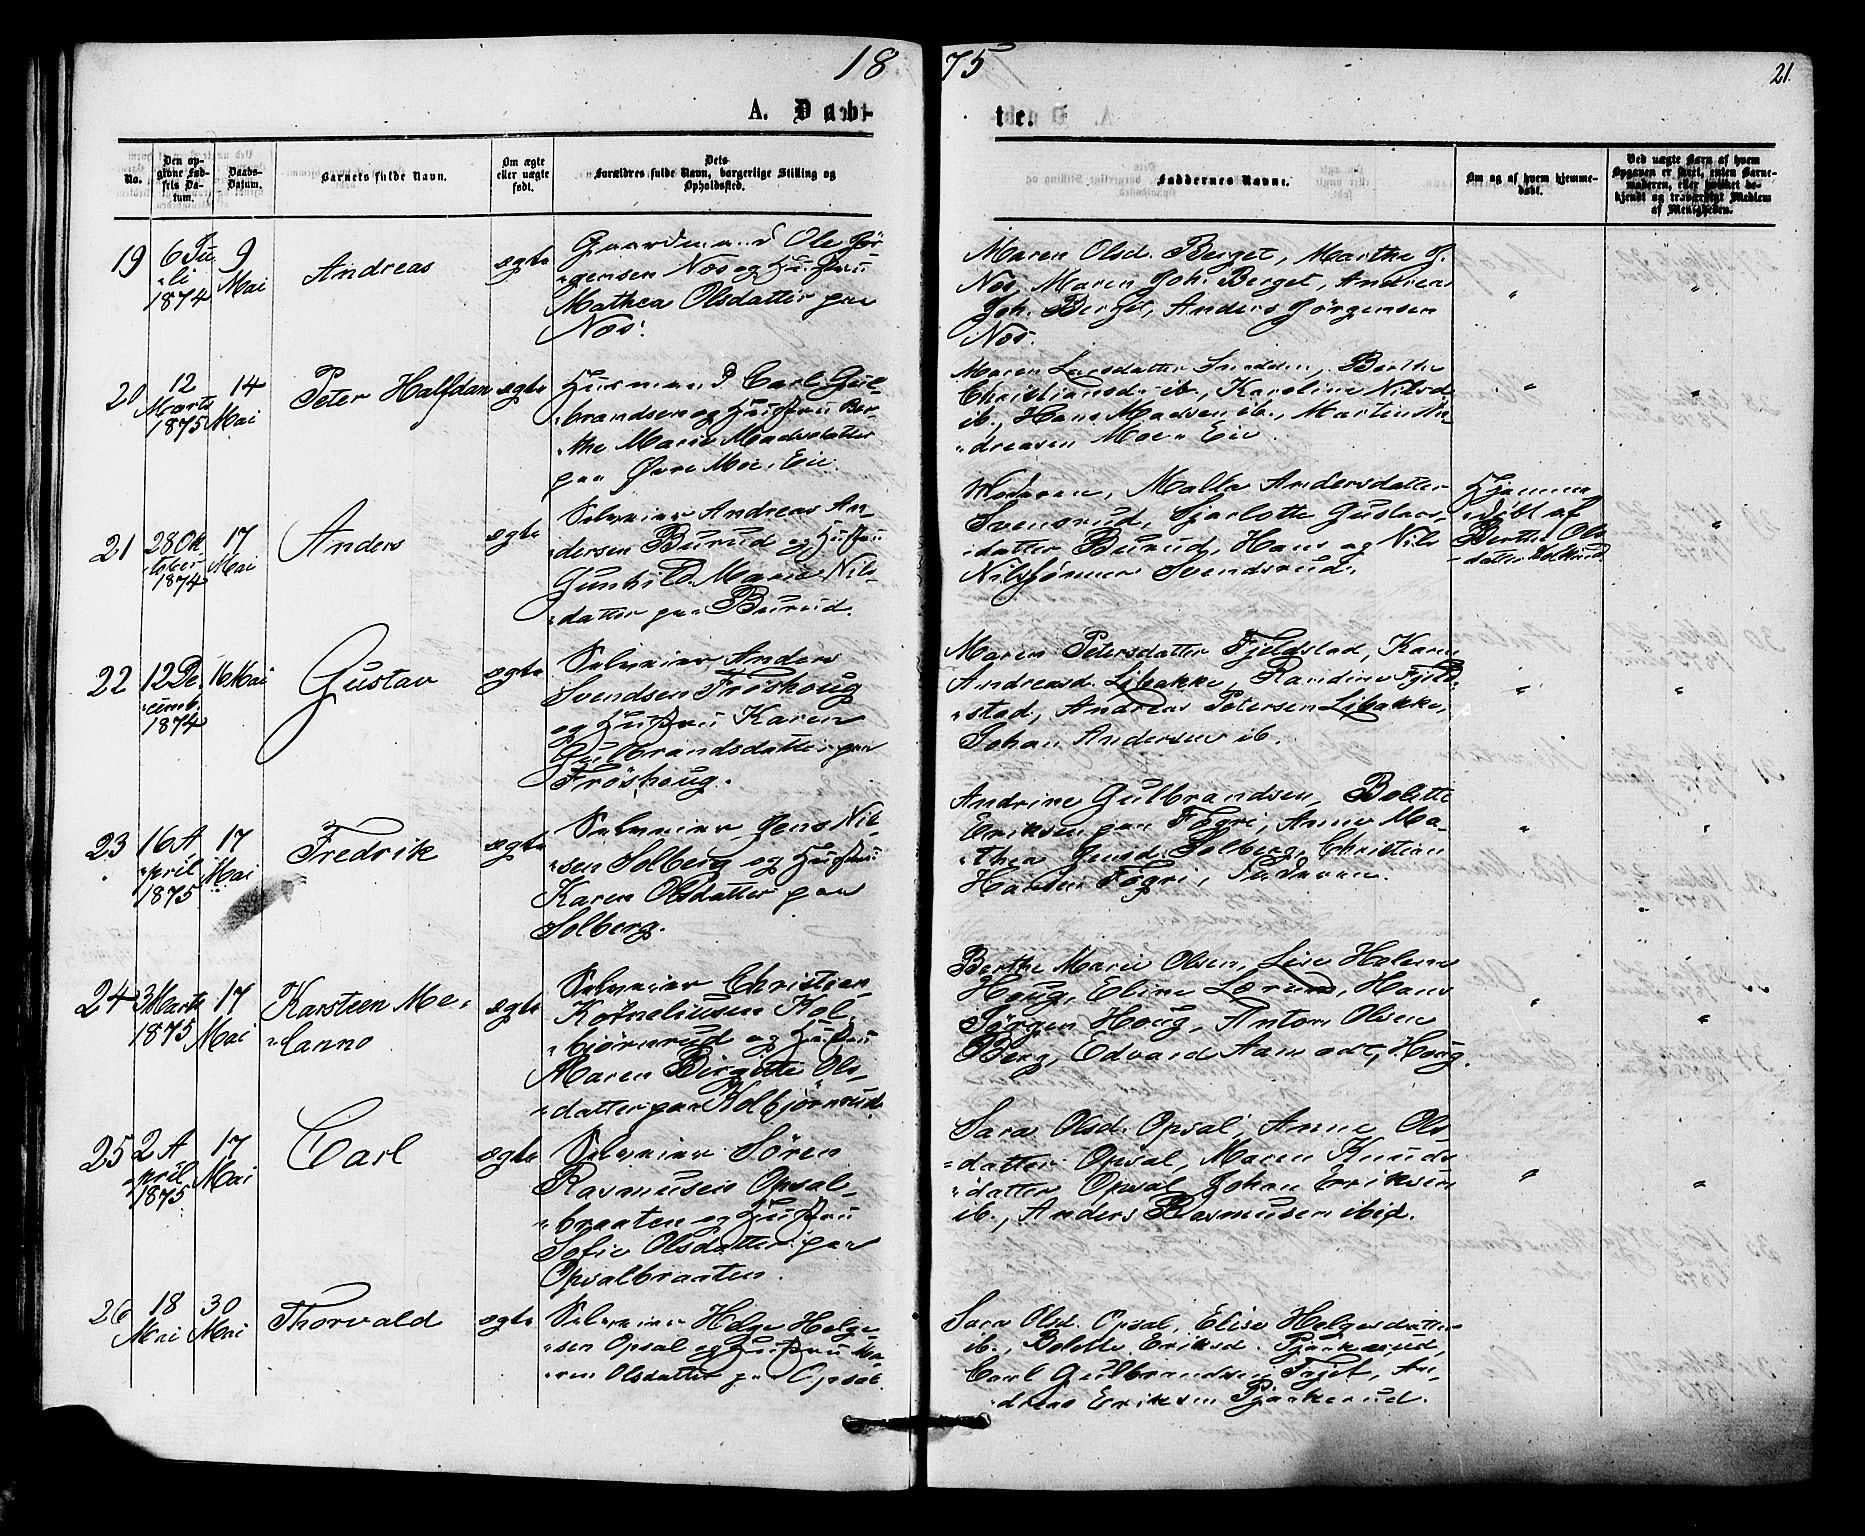 18 75
21.
A. Døbte.
No.
Den opgivne Fødsels Datum.
Daabs-Datum.
Barnets fulde Navn.
Om ægte eller uægte født.
Dets Forældres fulde Navn, borgerlige Stilling og Opholdssted.
Faddernes Navne.
Om og af hvem hjemmedøbt.
Ved uægte Barn af hvem Opgaven er skeet, enten Barnemoderen, eller hvilket bekjendt og troværdigt Medlem af Menigheden.
19
6 Ju
"li
1874
9
Mai
Andreas
ægte
Gaardmand Ole Jör
"gensen Næs og Hustru
Mathea Olsdatter paa
Næs.
Maren Olsd. Berget, Marthe J.
Næs, Maren Joh. Berget, Andreas
Joh. Berget, Anders Jørgensen
Næs.
"
"
20
12
Marts
1875
14
Mai
Peter Halfdan
ægte
Husmand Carl Gul
"brandsen og Hustru Ber-
"the Marie Madsdatter
paa Øvre Moe, Eie.
Maren Larsdatter Berthe
Christiansd. ib., Karoline Nilsd.
ib., Hans Madsen ib., Martin An
"dreasen Moe, Eie.
"
"
21
28 Ok-
"tober
1874
17
Mai
Anders
ægte
Selveier Andreas An
"dersen Burud og Hustru
Gunhild Marie Nils
"datter paa Burud.
Moderen, Malla Andersdatter
Svensrud, Sjarlotte Gustavs
"datter Burud, Hans og Nils
Nilssønner Svendsrud.
Hjemme
"döbt af
Berthe Ols
"datter
"
22
12 De-
"cemb.
1874
16 Mai
Gustav
ægte
Selveier Anders
Svendsen Fröshoug
og Hustru Karen
Gulbrandsdatter paa
Fröshoug.
Maren Petersdatter Fjeldstad, Karen
Andreasd. Libakke, Randine Fjeld
"stad, Andreas Petersen Libakke,
Johan Andersen ib.
"
"
23
16 A
"pril
1875
17
Mai
Fredrik
ægte
Selveier Jens Nil-
"sen Solberg og Hustru
Karen Olsdatter paa
Solberg.
Andrine Gulbrandsen, Bolette
Eriksen paa Fögri, Anne Ma-
"thea Jensd. Solberg, Christian
Hansen Fögri, Faderen.
"
"
24
3 Marts
1875
17
Mai
Karsteen Me-
"lanno
ægte
Selveier Christian
Korneliusen Kol
"bjørnrud og Hustru
Maren Birgitte Ols
"datter paa Kolbjørnrud.
Berthe Marie Olsen, Lise Helene
Houg, Eline Lærum, Hans
Jörgen Houg, Anton Olsen
Berg, Edvard Aamodt, Houg.
"
"
25
2 A
"pril
1875
17
Mai
Carl
ægte
Selveier Sören
Rasmusen Opsal-
"braaten og Hustru
Sofie Olsdatter paa
Opsalbraaten.
Sara Olsd. Opsal, Anne Ols
"datter Opsal, Maren Knuds
"datter Opsal, Johan Eriksen
ib., Anders Rasmusen ibid.
"
"
26
18
Mai
30
Mai
Thorvald
ægte
Selveier Helge Helge-
"sen Opsal og Hustru Ma
"ren Olsdatter paa Opsal.
Sara Olsd. Opsal, Elise Helgesdatter
ib., Bolette Eriksd. Pjaakerud,
Carl Gulbrandsen An
"dreas Eriksen Pjaakerud.